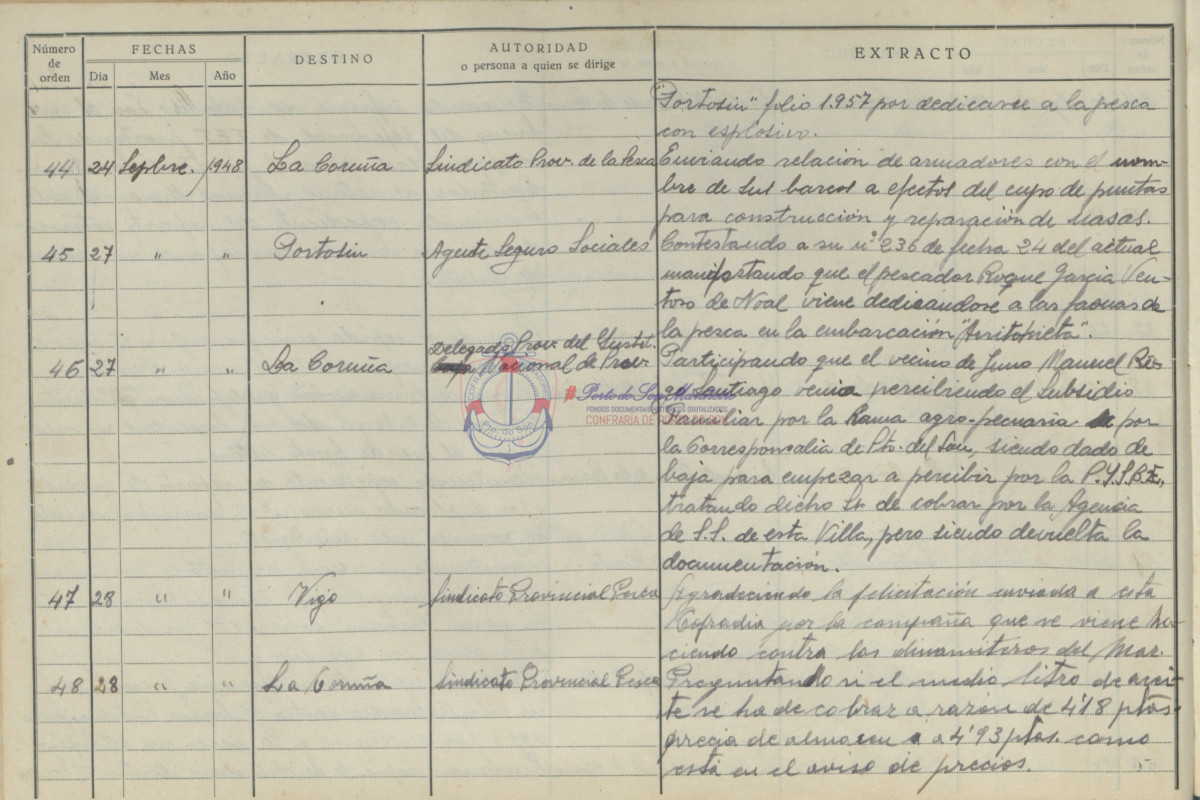 Número de orden
FECHAS
Día Mes Año
DESTINO
AUTORIDAD
o persona a quien se dirige
EXTRACTO
Portosin" folio 1.957 por dedicarse a la pesca
con explosivo.
44 24 Sepbre. 1948 La Coruña Sindicato Prov. de la Pesca Enviando relación de armadores con el nom-
bre de sus barcos a efectos del cupo de puntas
para construcción y reparación de nasas.
45 27 " " Portosin Agente Seguro Sociales Contestando a su nº 236 de fecha 24 del actual
manifestando que el pescador Roque Garcia Ven-
toso de Noal viene dedicandose a las faenas de
la pesca en la embarcación
46 27 " " La Coruña Delegado Prov. del Instit.
Nacional de Prev. Participando que el vecino de Juno Manuel
Santiago venia percibiendo el Subsidio
Familiar por la Rama agro-pecuaria por
la Corresponsalia de Pto. del Son, siendo dado de
baja para empezar a percibir por la
tratando dicho Sr. de cobrar por la Agencia
de S.S. de esta Villa, pero siendo devuelta la
documentación.
47 28 " " Vigo Sindicato Provincial Pesca Agradeciendo la felicitación enviada a esta
Cofradia por la compaña que se viene ha-
ciendo contra los dinamiteros del Mar.
48 28 " " La Coruña Sindicato Provincial Pesca Preguntando si el medio litro de acei-
te se ha de cobrar a razón de 4'18 ptas.
precio de almacen o a 4'93 ptas. como
está en el aviso de precios.
Pto. do Son
# Porto do Son
FONDOS DOCUMENTAIS DIGITALIZADOS
CONFRARÍA DE